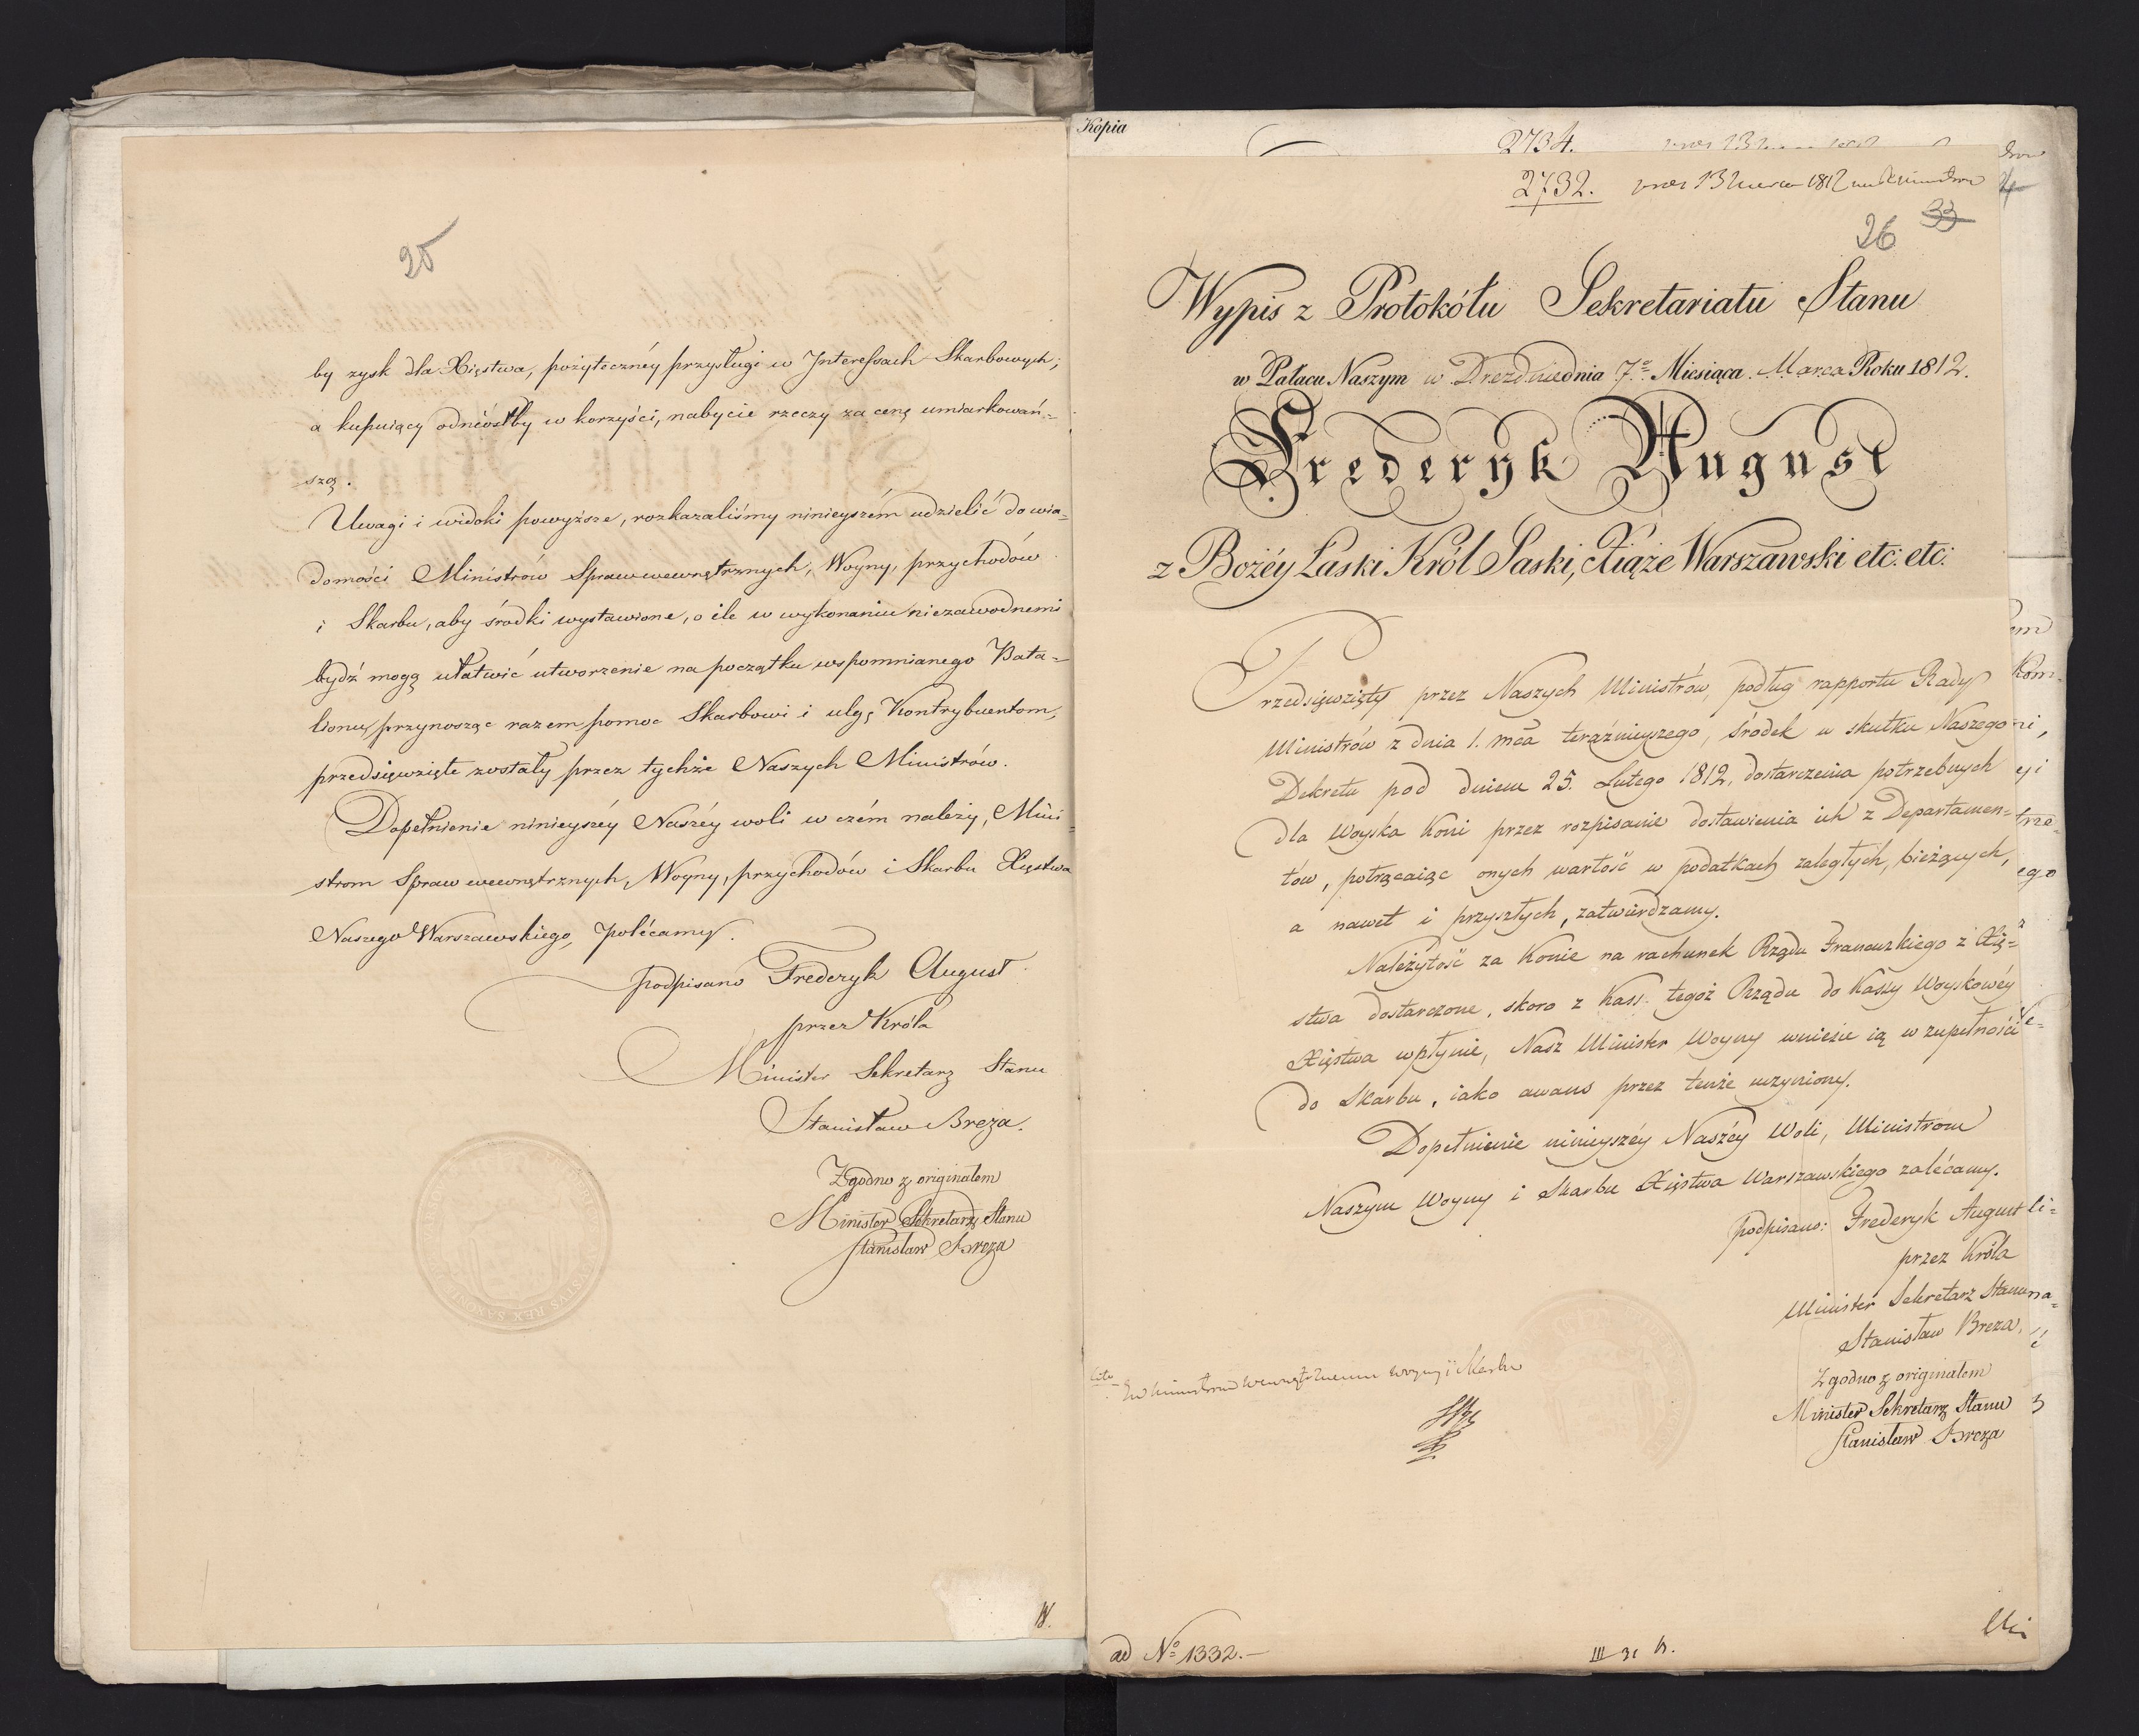 25
by zysk dla Xięstwa, pożyteczney przysługi w Interessach Skarbowych;
a kupuiący odniósłby w korzyści, nabycie rzeczy za cenę umiarkowań=
szą.
Uwagi i widoki powyższe, rozkazaliśmy ninieyszém udzielić do wia=
domości Ministrów Spraw wewnętrznych, Woyny, przychodów
i Skarbu, aby środki wystawione, o ile w wykonaniu niezawodnemi
bydź mogą ułatwić utworzenie na początku wspomnianego Bata=
lionu, przynosząc razem pomoc Skarbowi i ulgę Kontrybuentom,
przedsięwzięte zostały przez tychże Naszych Ministrów.
Dopełnienie ninieyszéy Naszéy woli w czém należy, Mini=
strom Spraw wewnętrznych, Woyny, przychodów i Skarbu Xięstwa
Naszego Warszawskiego, polécamy.
podpisano Frederyk August
przez Króla
Minister Sekretarz Stanu
Stanisław Breza.
Zgodno z originałem
Minister Sekretarz Stanu
Stanisław Breza
Kopia
2734.
2732.
1812
26 33
Wypis z Protokółu Sekretariatu Stanu
w Pałacu Naszym w Dreznie dnia 7.º Miesiąca Marca Roku 1812.
Frederyk August
z Bożéy Łaski Król Saski, Xiąże Warszawski etc: etc:
Przedsięwzięty przez Naszych Ministrów, podług rapportu Rady
Ministrów z dnia 1. mca teraźnieyszego, środek w skutku Naszego
Dekretu pod dniem 25. Lutego 1812, dostarczenia potrzebnych
dla Woyska Koni przez rozpisanie dostawienia ich z Departamen=
tów, potrącaiąc onych wartość w podatkach zaległych, bieżących,
a nawet i przyszłych, zatwierdzamy.
Należytość za Konie na rachunek Rządu Francuzkiego z Xię=
stwa dostarczone, skoro z Kass tegoż Rządu do Kassy Woyskowéy
Xięstwa wpłynie, Nasz Minister Woyny wniesie ią w zupełności
do Skarbu, iako awans przez tenże uczyniony.
Dopełnienie ninieyszéy Naszéy Woli, Ministrom
Naszym Woyny i Skarbu Xięstwa Warszawskiego zalécamy.
podpisano: Frederyk August
przez Króla
Minister Sekretarz Stanu
Stanisław Breza.
Zgodno z originałem
Minister Sekretarz Stanu
Stanisław Breza
ad Nº 1332.